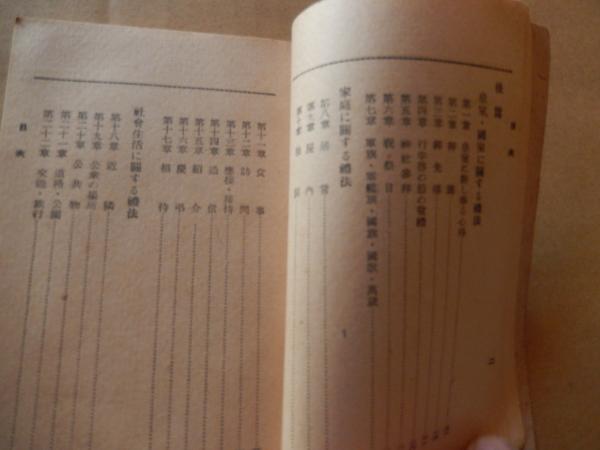 目次
二
後篇
皇室・國家に關する禮法
第一章 皇室に對し奉る心得
第二章 拜謁
第三章 御先導
第四章 行幸啓の節の敬禮
第五章 神社參拜
第六章 祝祭日
第七章 軍旗・軍艦旗・國旗・國歌・萬歲
家庭に關する禮法
第八章 居常
第九章 屋內
第十章
第十一章 食事
第十二章 訪問
第十三章 應接・接待
第十四章 通信
第十五章 紹介
第十六章 慶弔
第十七章 招待
社會生活に關する禮法
第十八章 近隣
第十九章 公衆の場所
第二十章 公共物
第二十一章 道路・公園
第二十二章 交通・旅行
目次